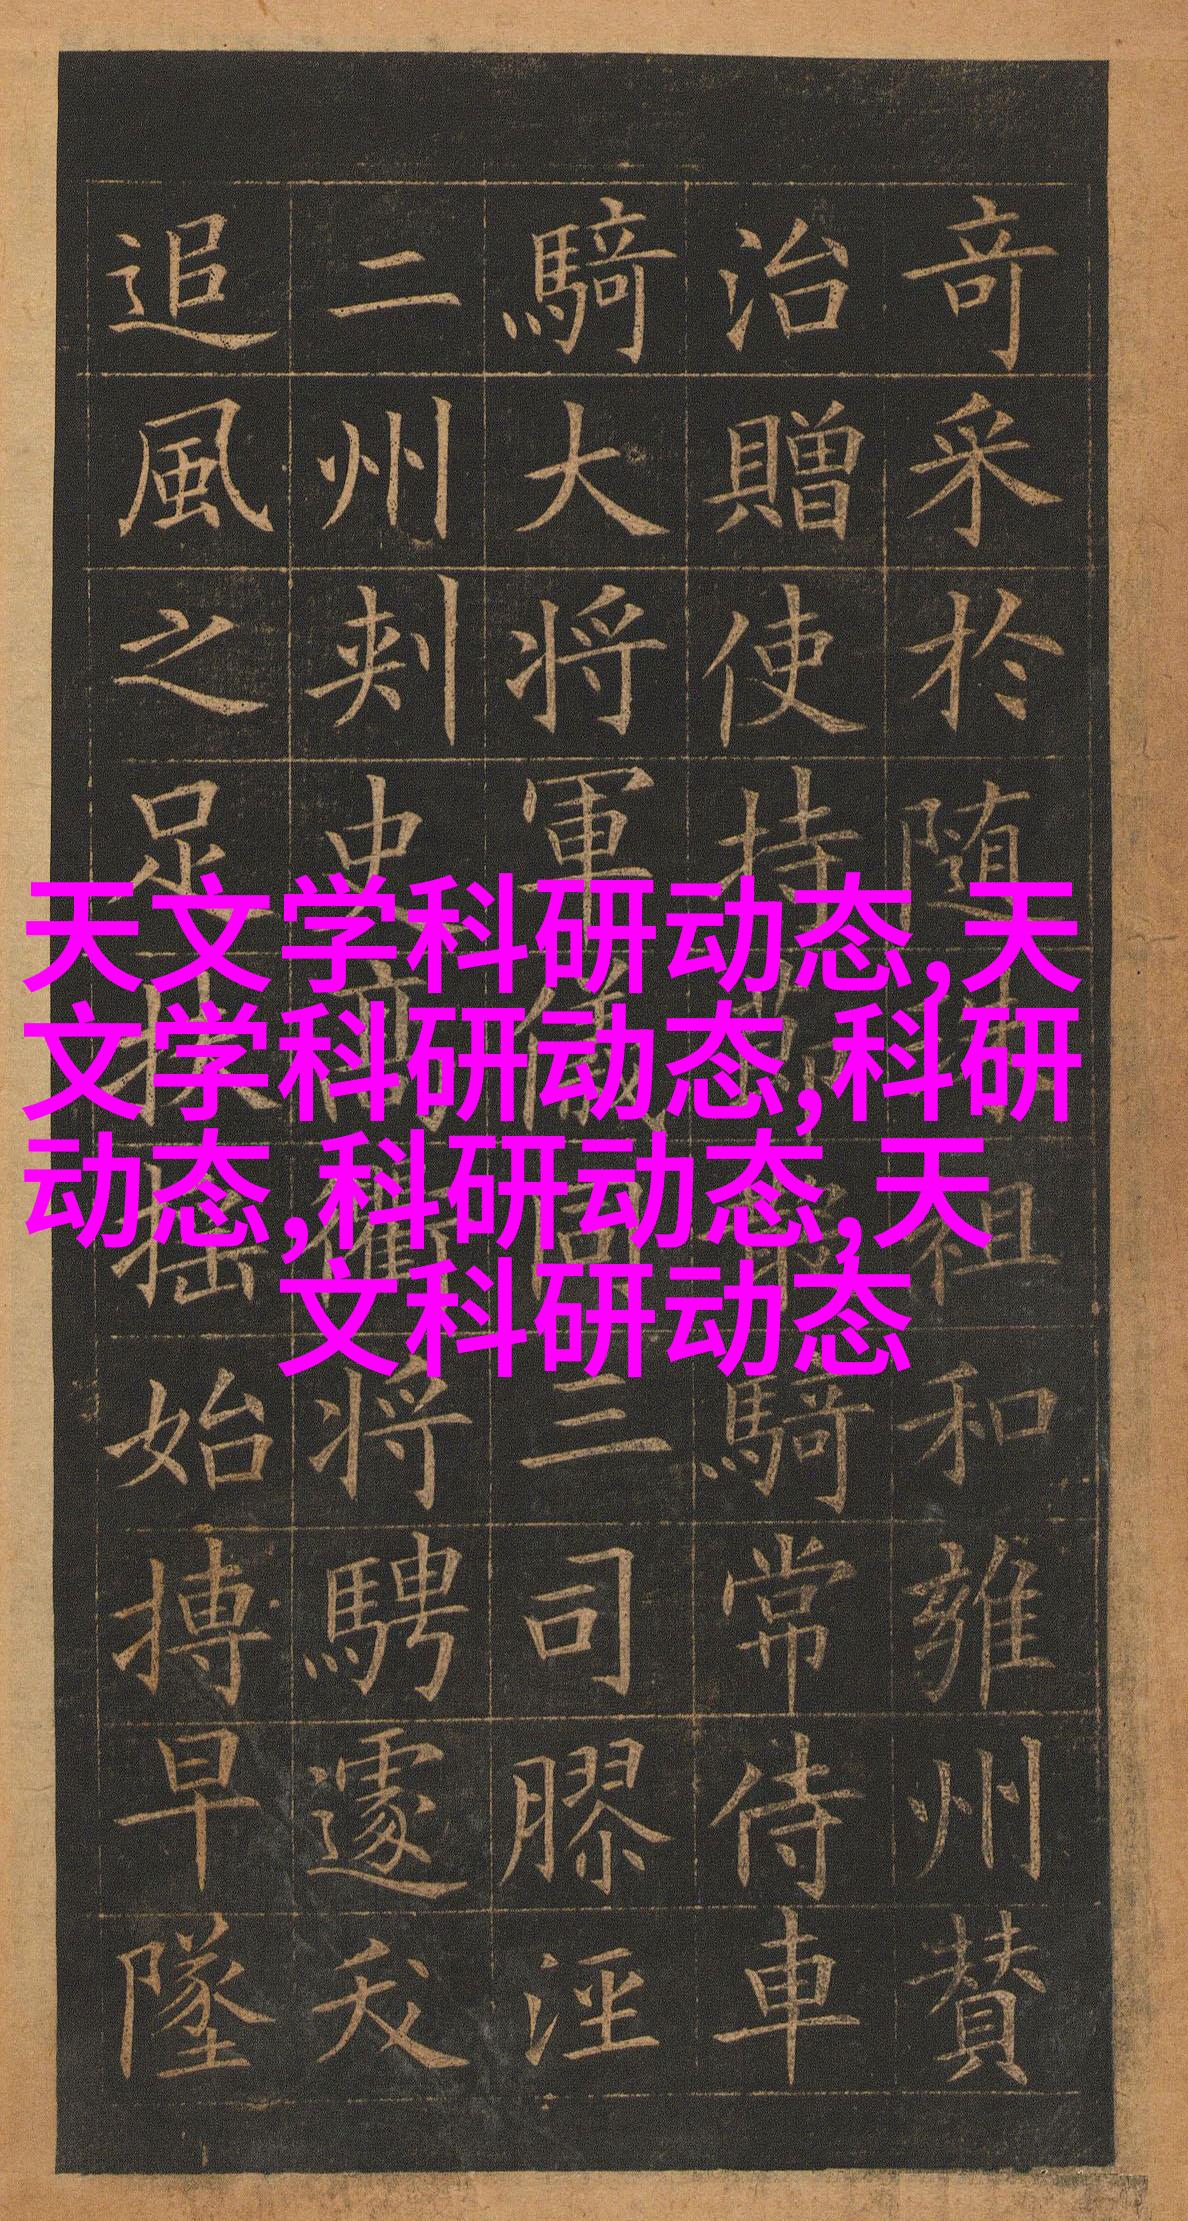 奇采於随祖和雍州賛
治贈使持騎常侍車
騎大将軍儀同三司膠涇
二州刾史高衢将騁遽夭
追風之足扶摇始搏早墜
天文学科研动态,天
文学科研动态,科研
动态,科研动态,天
文科研动态